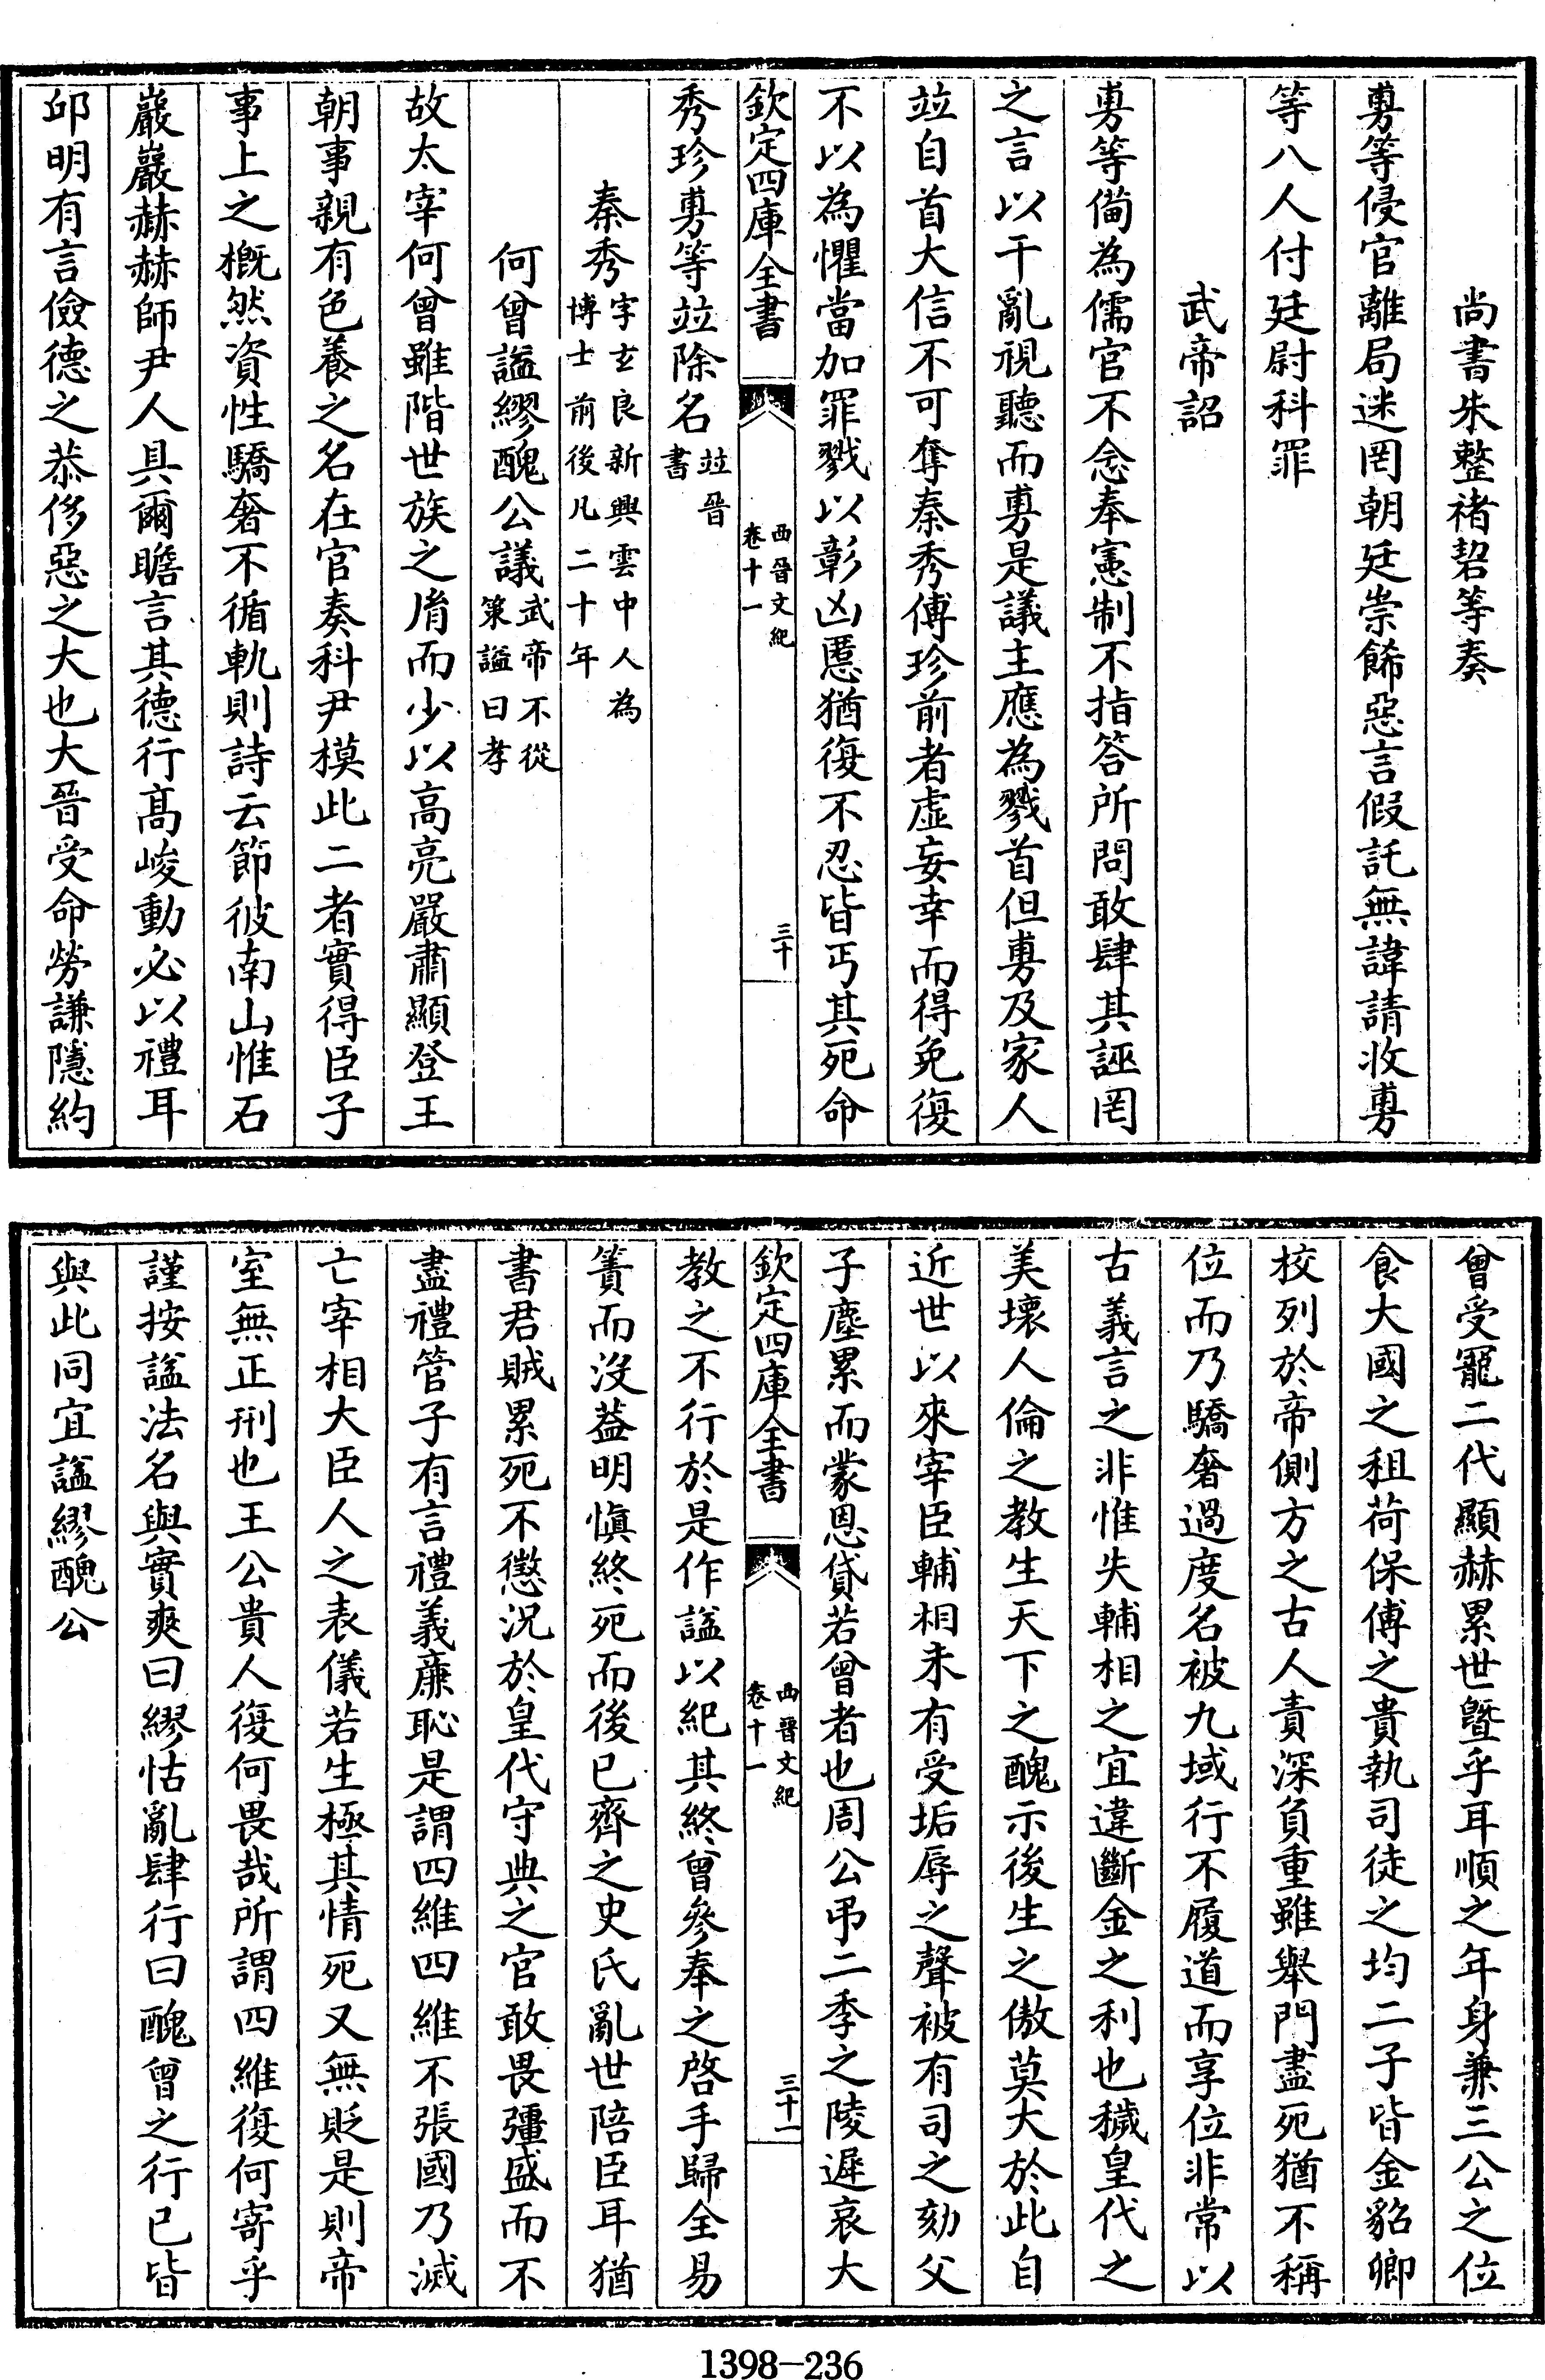 尚書朱整褚䂮等奏
旉等侵官離局迷罔朝廷崇飾惡言假託無諱請收旉
等八人付廷尉科罪
武帝詔
旉等備為儒官不念奉憲制不指答所問敢肆其誣罔
之言以干亂視聽而旉是議主應為戮首但旉及家人
竝自首大信不可奪秦秀傅珍前者虛妄幸而得免復
不以為懼當加罪戮以彰凶慝猶復不忍皆丐其死命
欽定四庫全書
西晉文紀
卷十一
三十
秀珍旉等竝除名竝晉
書
秦秀字𤣥良新興雲中人為
博士前後凡二十年
何曾諡繆醜公議武帝不從
策諡曰孝
故太宰何曾雖階世族之𦙍而少以高亮嚴肅顯登王
朝事親有色養之名在官奏科尹模此二者實得臣子
事上之槪然資性驕奢不循軌則詩云節彼南山惟石
巖巖赫赫師尹人具爾瞻言其德行髙峻動必以禮耳
邱明有言儉德之恭侈惡之大也大晉受命勞謙隱約
曾受寵二代顯赫累世曁乎耳順之年身兼三公之位
食大國之租荷保傅之貴執司徒之均二子皆金貂卿
校列於帝側方之古人責深負重雖舉門盡死猶不稱
位而乃驕奢過度名被九域行不履道而享位非常以
古義言之非惟失輔相之宜違斷金之利也穢皇代之
美壞人倫之教生天下之醜示後生之傲莫大於此自
近世以來宰臣輔相未有受垢辱之聲被有司之劾父
子塵累而蒙恩貸若曾者也周公弔二季之陵遲哀大
欽定四庫全書
西晉文紀
卷十一
三十一
教之不行於是作諡以紀其終曾參奉之啓手歸全易
簀而沒葢明愼終死而後已齊之史氏亂世陪臣耳猶
書君賊累死不懲況於皇代守典之官敢畏彊盛而不
盡禮管子有言禮義廉恥是謂四維四維不張國乃滅
亡宰相大臣人之表儀若生極其情死又無貶是則帝
室無正刑也王公貴人復何畏哉所謂四維復何寄乎
謹按諡法名與實爽曰繆怙亂肆行曰醜曾之行已皆
與此同宜諡繆醜公
1398-236